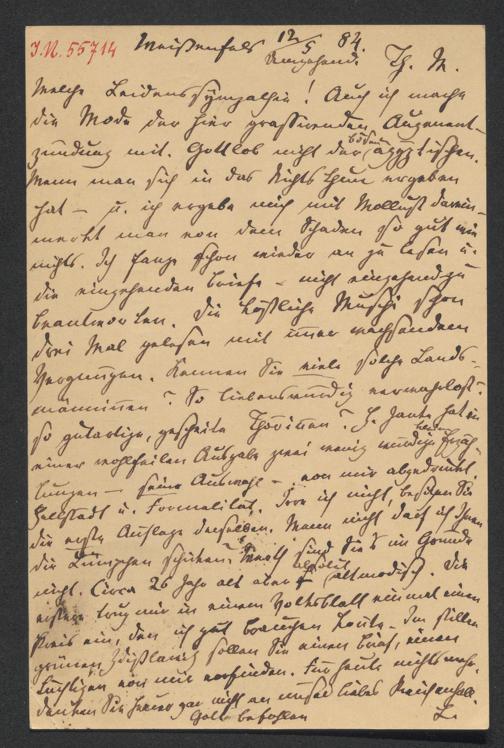 I.N. 55714 Weißenfels 12/5 84.
Umgehend. Th. M.
Welche Leidenssympathie! Auch ich mache
die Mode der hier grassirenden Augenent-
zündung mit. Gottlob nicht der bösen ägyptischen.
Wenn man sich in das Nichtsthun ergeben
hat – u. ich ergebe mich mit Wollust darein –
merkt man von dem Schaden so gut wie
nichts. Ich fange schon wieder an zu lesen u.
die eingehenden Briefe – nicht eingehend zu
beantworten. Die köstliche Muschi schon
drei Mal gelesen mit immer wachsendem
Vergnügen. Kennen Sie viele solche Lands-
männinnen? So liebenswürdig verwahrloste
so gutartige, gescheite Thörinnen? H. Janke hat in
einer wohlfeilen Ausgabe zwei wenig würdige Erzäh-
lungen – seine Auswahl – von mir abgedruckt.
Hellstädt u. Formalität. Irre ich nicht, besitzen Sie
die erste Auflage derselben. Wenn nicht, darf ich Ihnen
die Dingchen schicken? Werth sind Sie's im Grunde
nicht. Circa 26 Jahr alt aber absolut altmodisch. Die
erstere trug mir in einem Volksblatt einmal einen
Preis ein, den ich gut brauchen konnte. Im stillen
grünen Zdißlawitz sollen Sie einen Brief, einen
tüchtigen von mir vorfinden. Für heute nichts mehr.
Denken Sie heuer gar nicht an unser liebes Reichenhall.
Gott befohlen
L.